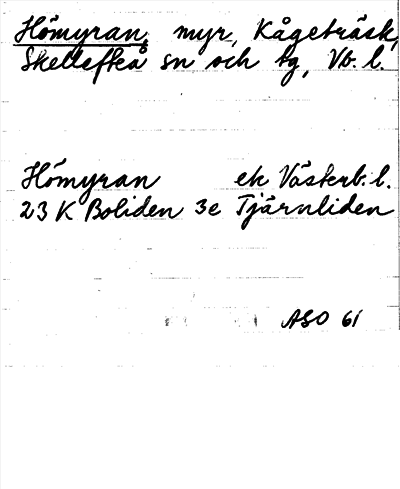 Hömyran, myr, Kågeträsk,
Skellefteå sn och tg, Vb. l.
Hömyran ek Västerb. l.
23 K Boliden 3e Tjärnliden
ASO 61